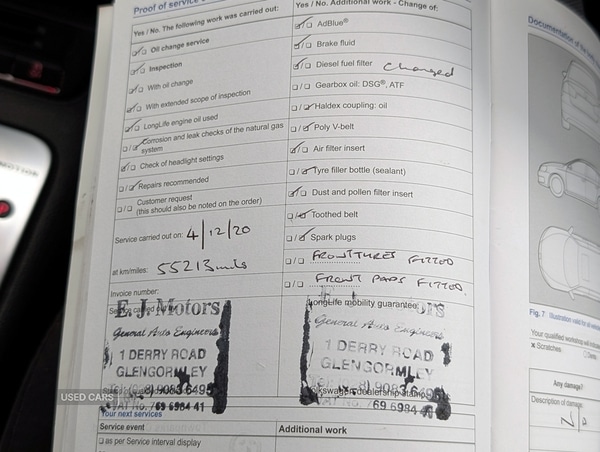 Proof of service
Yes / No. The following work was carried out:
Oil change service
Inspection
With oil change
With extended scope of inspection
LongLife engine oil used
Corrosion and leak checks of the natural gas
system
Check of headlight settings
Repairs recommended
Customer request
(this should also be noted on the order)
Service carried out on: 4/12/20
at km/miles: 55213 miles
Invoice number:
E. J. Motors
General Auto Engineers
1 DERRY ROAD
GLENGORMLEY
VAT No. 769 6984 41
USED CARS
Your next services
Service event
as per Service interval display
Yes / No. Additional work - Change of:
AdBlue®
Brake fluid
Diesel fuel filter changed
Gearbox oil: DSG®, ATF
Haldex coupling: oil
Poly V-belt
Air filter insert
Tyre filler bottle (sealant)
Dust and pollen filter insert
Toothed belt
Spark plugs
FRONT TYRES FITTED
FRONT PADS FITTED.
LongLife mobility guarantee:
General Auto Engineers
1 DERRY ROAD
GLENGORMLEY
69 6984
Additional work
Documentation of the
Fig. 7
Your qualified workshop will
× Scratches
Any damage?
Description of damage